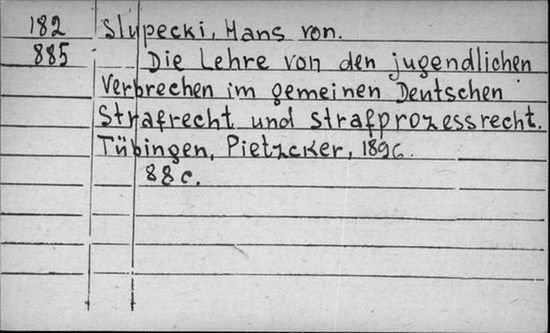 182 Slupecki, Hans von.
885 Die Lehre von den jugendlichen
Verbrechen im gemeinen Deutschen
Strafrecht und Strafprozessrecht.
Tübingen, Pietzcker, 1896.
88 c.